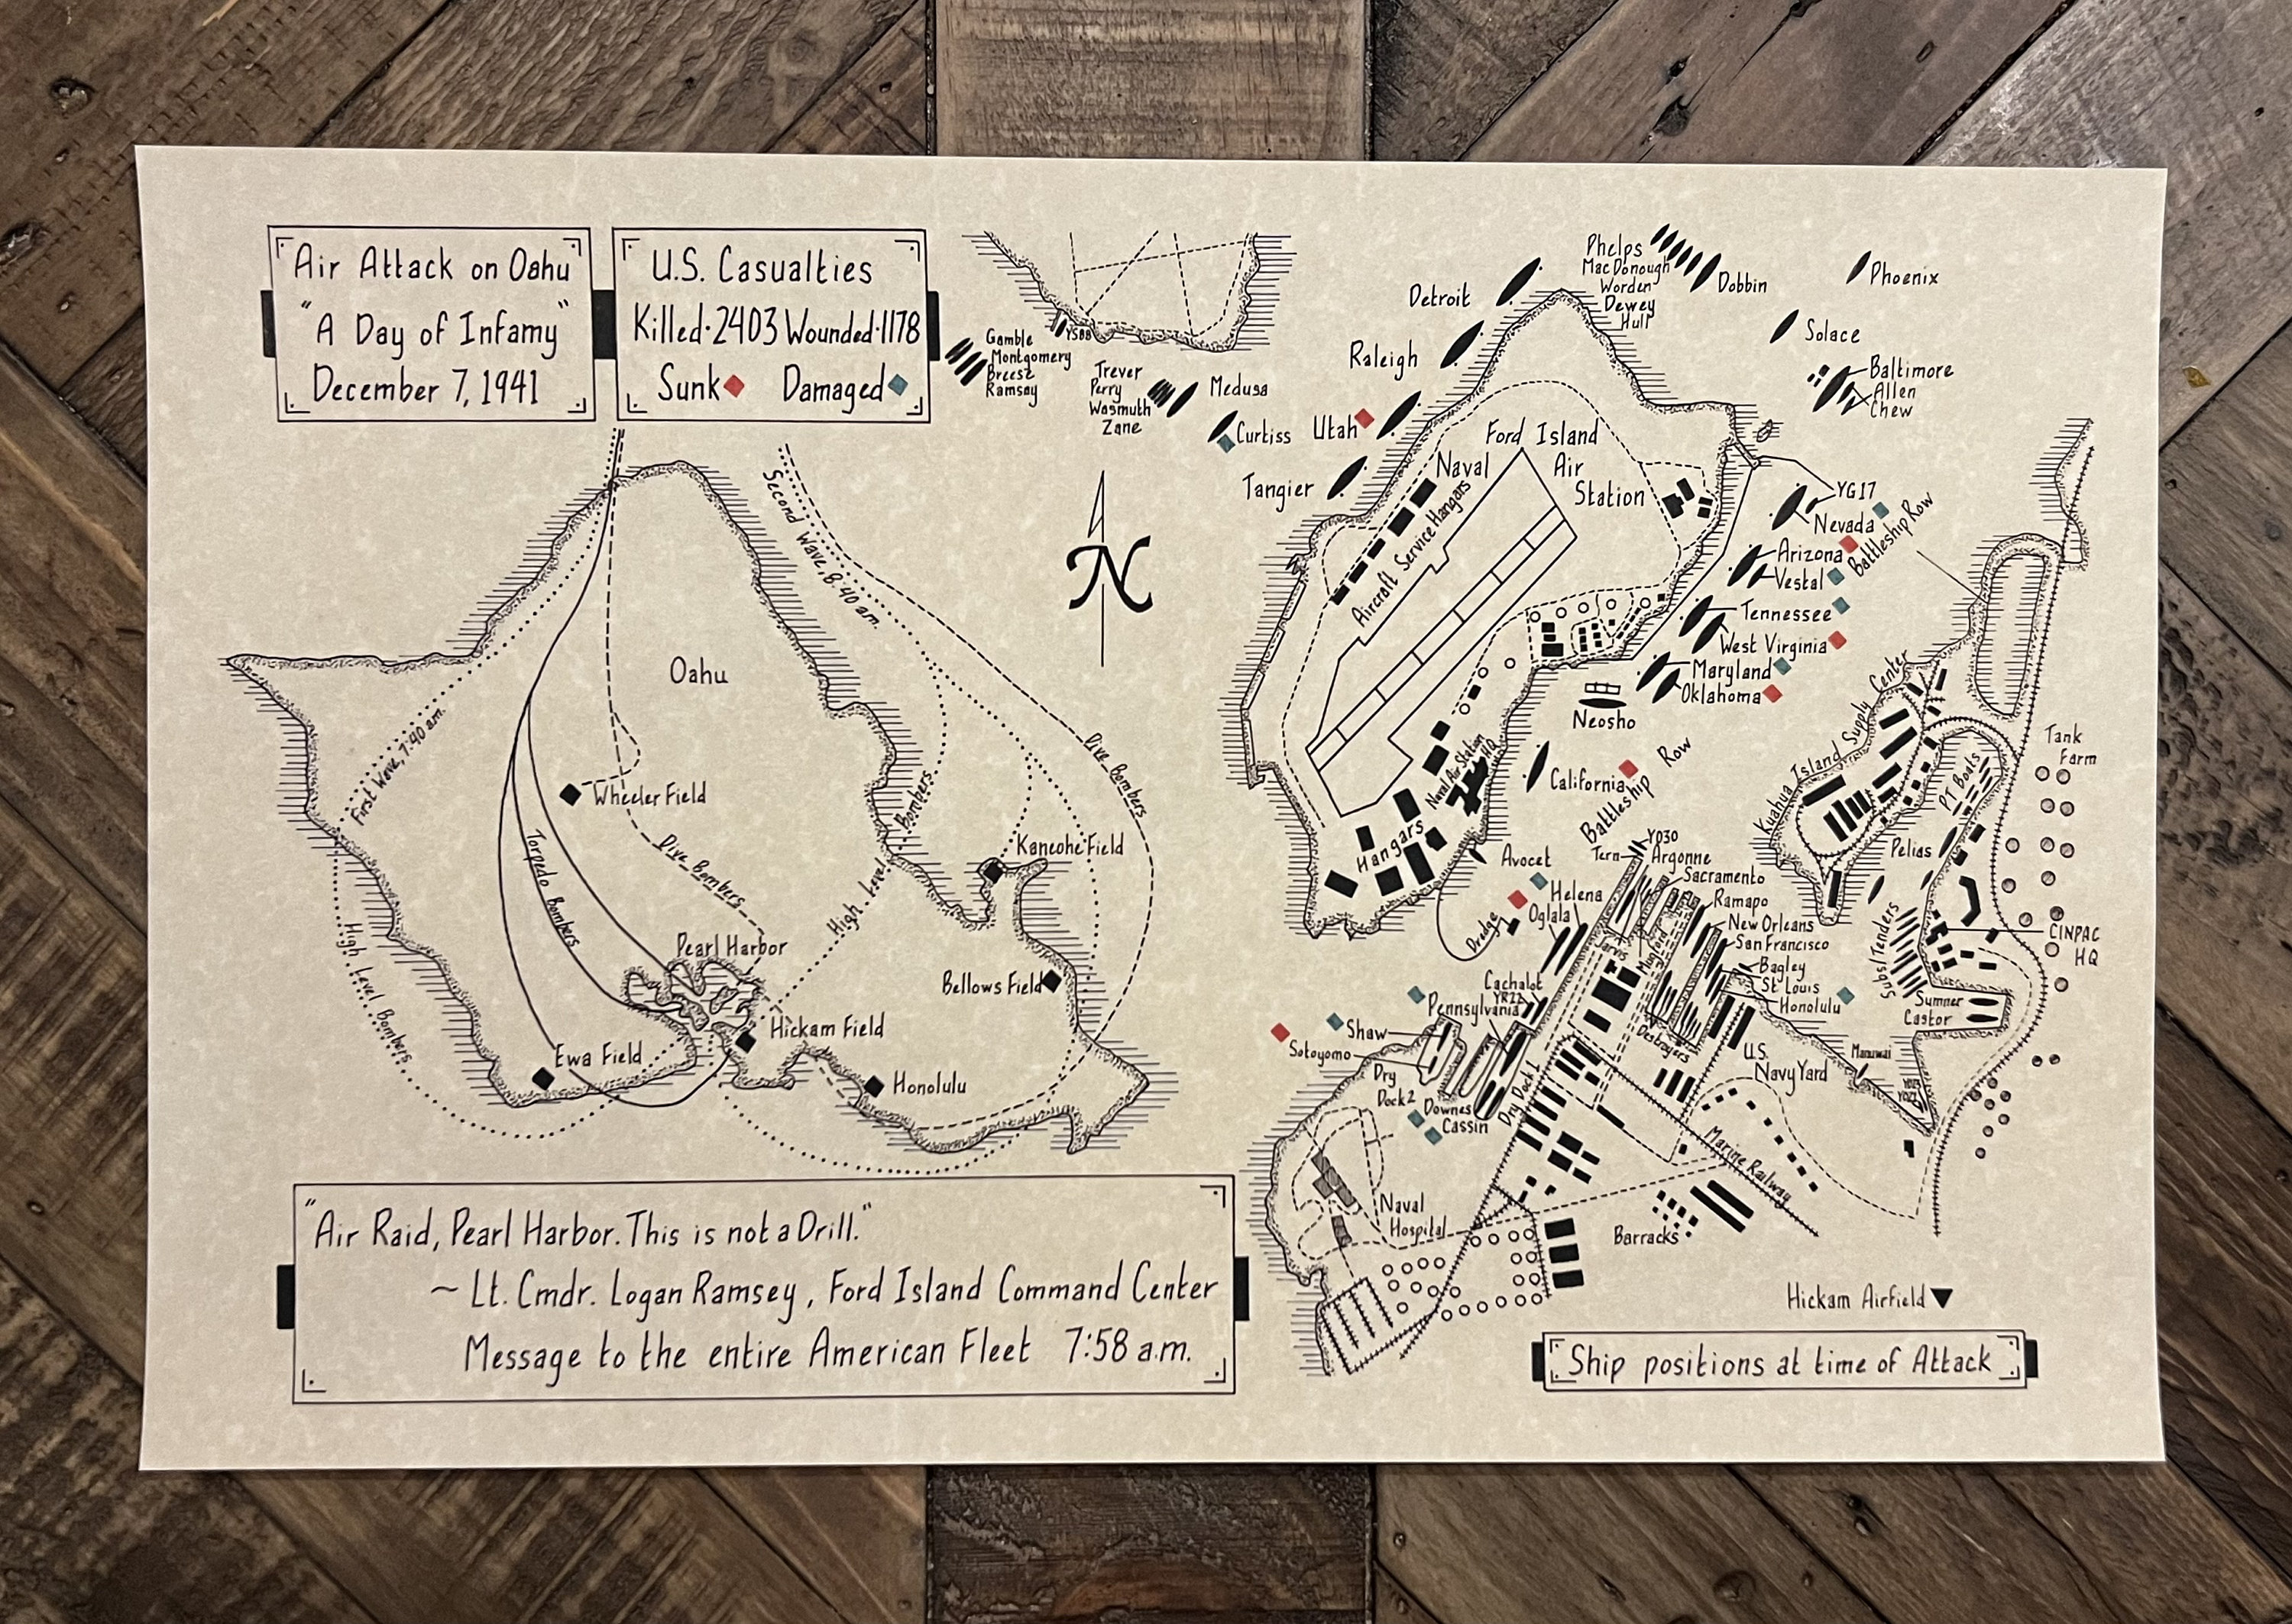 Air Attack on Oahu
"A Day of Infamy"
December 7, 1941
U.S. Casualties
Killed·2403 Wounded·1178
Sunk Damaged
First Wave, 7:40 a.m.
High Level Bombers
Torpedo Bombers
Dive Bombers
Second Wave, 8:40 a.m.
High Level Bombers
Dive Bombers
Oahu
Wheeler Field
Kaneohe Field
Pearl Harbor
Bellows Field
Hickam Field
Ewa Field
Honolulu
N
"Air Raid, Pearl Harbor. This is not a Drill."
~ Lt. Cmdr. Logan Ramsey, Ford Island Command Center
Message to the entire American Fleet 7:58 a.m.
YSBB
Gamble
Montgomery
Breese
Ramsay
Trever
Perry
Wasmuth
Zane
Medusa
Curtiss
Detroit
Raleigh
Utah
Tangier
Phelps
MacDonough
Worden
Dewey
Hull
Dobbin
Phoenix
Solace
Baltimore
Allen
Chew
Ford Island
Naval Air
Station
Aircraft Service Hangars
YG17
Nevada
Battleship Row
Arizona
Vestal
Tennessee
West Virginia
Maryland
Oklahoma
Neosho
California
Battleship Row
Naval Air Station HQ
Hangars
Avocet
Dredge
Kuahua Island Supply Center
PT Boats
Tank
Farm
Pelias
Subs/Tenders
CINPAC
HQ
Sumner
Castor
YO30
Tern
Argonne
Sacramento
Ramapo
New Orleans
San Francisco
Bagley
St Louis
Honolulu
Helena
Oglala
Jarvis
Mugford
Cachalot
Pennsylvania
Shaw
Sotoyomo
Dry
Dock 2
Downes
Cassin
Dry Dock 1
Destroyers
U.S.
Navy Yard
Manuwai
Marine Railway
Naval
Hospital
Barracks
Hickam Airfield
Ship positions at time of Attack